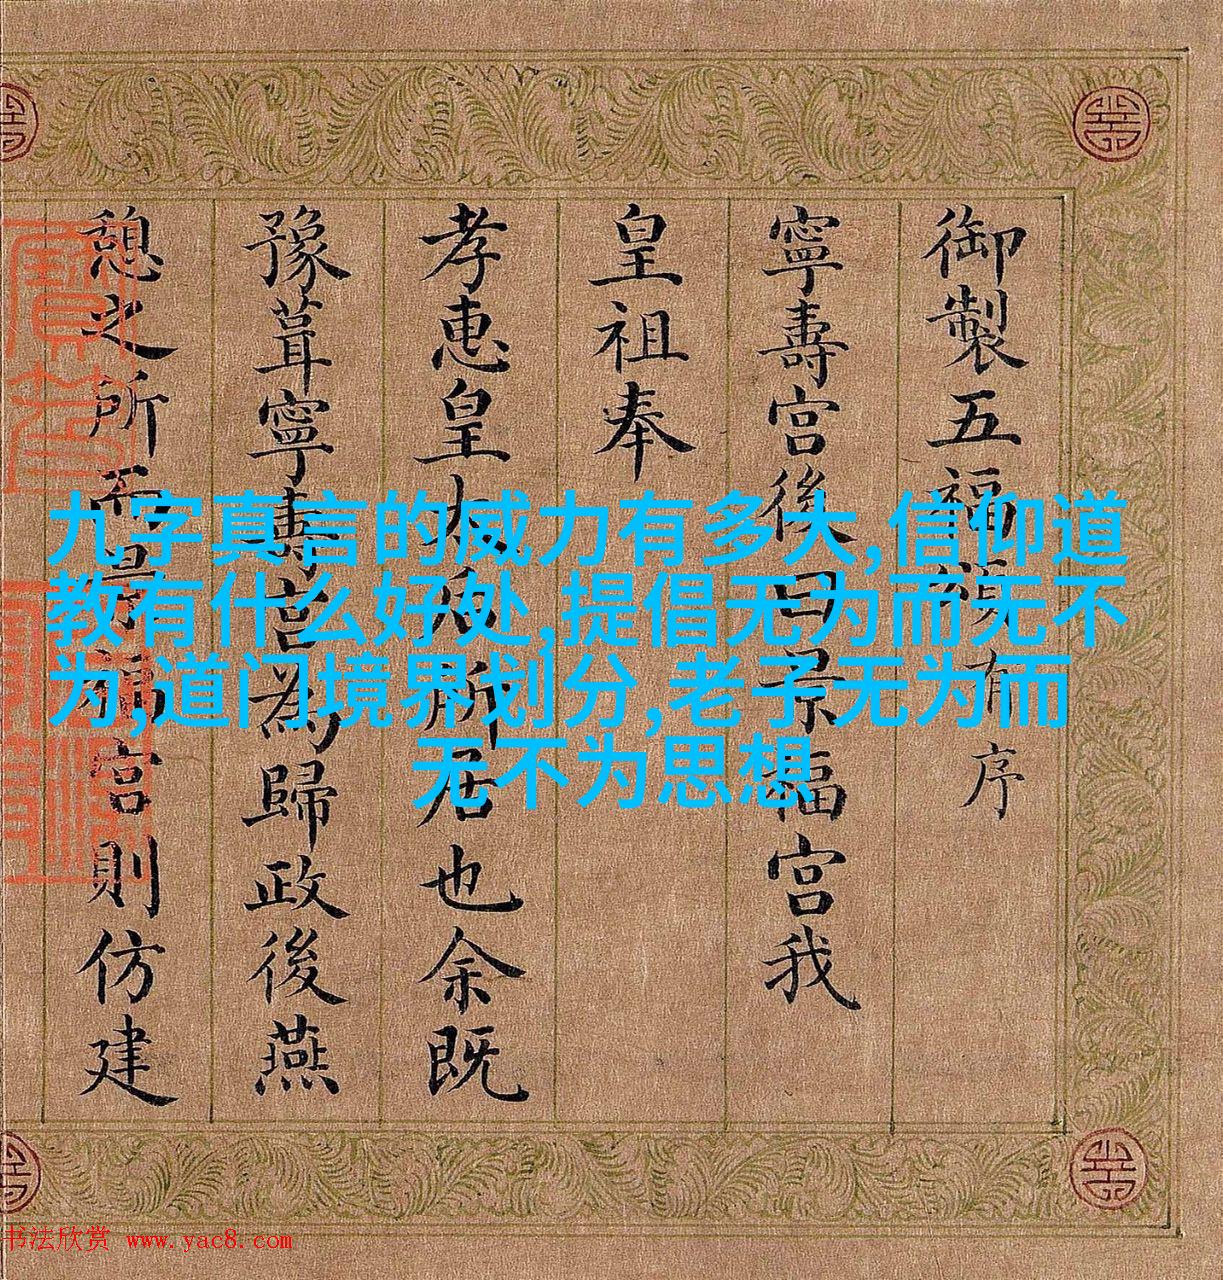 御製五福頌有序
寧壽宮後曰景福宮我
皇祖奉
孝惠皇太后所居也余既
豫葺寧壽宮為歸政後燕
憩之所而景福宮則仿建
九字真言的威力有多大,信仰道
教有什么好处,提倡无为而无不
为,道门境界划分,老子无为而
无不为思想
书法欣赏 www.yac8.com